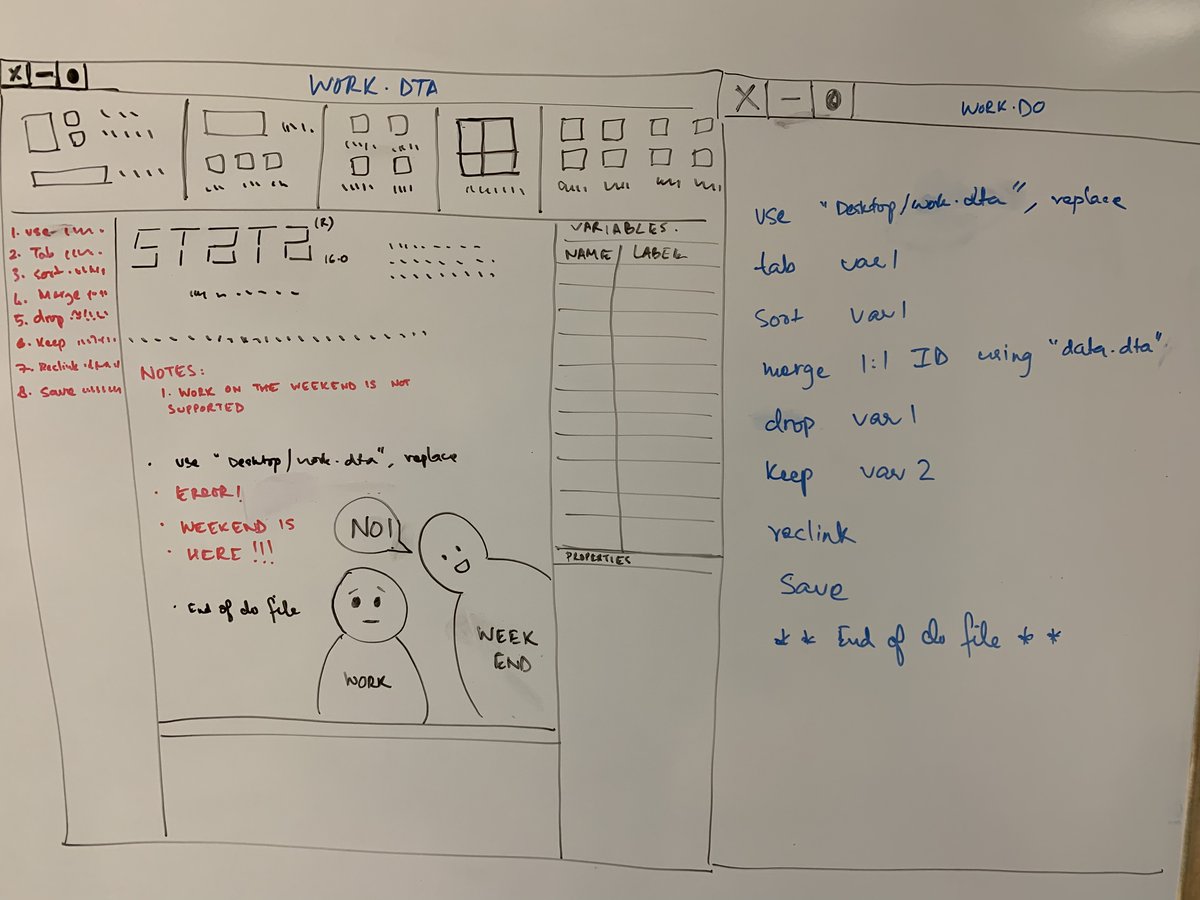 WORK.DTA
1. use
2. Tab
3. Sort
4. Merge
5. drop
6. Keep
7. Reclink
8. Save
STATA (R)
16.0
NOTES:
1. WORK ON THE WEEKEND IS NOT
SUPPORTED
. use "Desktop/work.dta", replace
. ERROR!
. WEEKEND IS
. HERE !!!
. End of do file
NO!
WORK
WEEK
END
VARIABLES.
NAME LABEL
PROPERTIES
X - WORK.DO
use "Desktop/work.dta", replace
tab var1
Sort var1
merge 1:1 ID using "data.dta"
drop var1
Keep var2
reclink
Save
** End of do file **